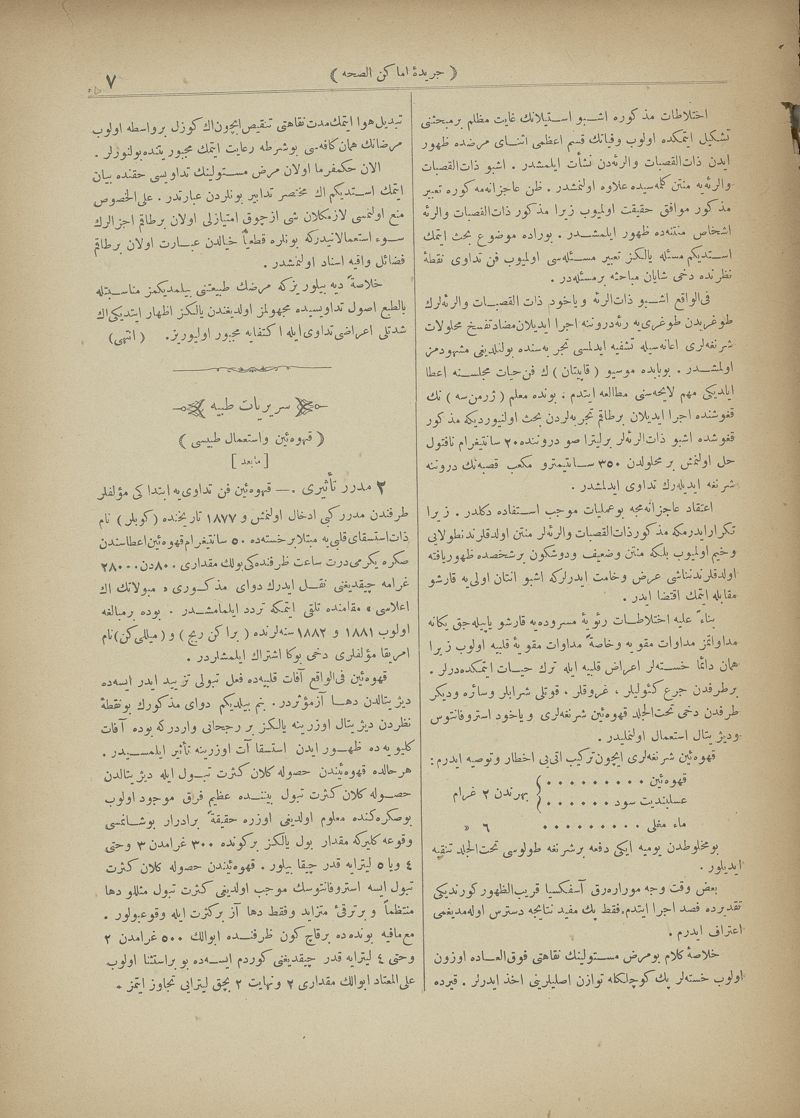 ﴿ جریدهٔ اماکن الصحه ﴾
٧
اختلاطات مذکوره اشبو استیلانك غایت مظلم برمبحثنی
تشکیل ایتمکده اولوب وفیاتك قسم اعظمی اثنای مرضده ظهور
ایدن ذات‌القصبات والرئه‌دن نشأت ایلمشدر . اشبو ذات‌القصبات
والرئه‌یه منتن کلمه‌سیده علاوه اولنمشدر . ظن عاجزانه‌مه کوره تعبیر
مذکور موافق حقیقت اولمیوب زیرا مذکور ذات‌القصبات والرئه
اشخاص منتنه‌ده ظهور ایلمشدر . بوراده موضوع بحث ایتمك
استدیکم مسئله یالکز تعبیر مسئله‌سی اولمیوب فن تداوی نقطهٔ
نظرنده دخی شایان مباحثه برمسئله‌در .
فی‌الواقع اشبو ذات‌الرئه ویاخود ذات القصبات والرئه‌لرك
طوغریدن طوغری‌یه رئه‌دروننه اجرا ایدیلان مضادتفسخ محلولات
شرنغه‌لری اعانه‌سیله تشفیه ایدلمسی تجربه‌سنده بولندلدیغی مشهودمز
اولمشدر . بوبابده موسیو ( قاپیتان ) ك فن حیات مجلسنه اعطا
ایلدیکی مهم لایحه‌سنی مطالعه ایتدم . بونده معلم ( ژرمن‌سه ) نك
قغوشنده اجرا ایدیلان برطاقم تجربه‌لردن بحث اولنیوردیکه مذکور
قغوشده اشبو ذات‌الرئه‌لر برلیترا صو دروننده ٢٠ سانتیغرام نافتول
حل اولنمش بر محلولدن ٣٥٠ سانتیمترو مکعب قصبه‌نك دروننه
شرنغه ایدیله‌رك تداوی ایدلمشدر .
اعتقاد عاجزانه‌مجه بوعملیات موجب استفاده دکلدر . زیرا
تکرار ایدرمکه مذکور ذات‌القصبات والرئه‌لر منتن اولدقلرندن‌طولایی
وخیم اولمیوب بلکه منتن وضعیف ودوشکون برشخصده ظهور یافته
اولدقلرندنناشی عرض وخامت ایدرلرکه اشبو انتان اولی‌یه قارشو
مقابله ایتمك اقتضا ایدر .
بناءً علیه اختلاطات رئویهٔ مسروده‌یه قارشو یاپیله‌جق یکانه
مداواتمز مداوات مقویه وخاصةً مداوات مقویهٔ قلبیه اولوب زیرا
همان دائما خسته‌لر اعراض قلبیه ایله ترك حیات ایتمکده‌درلر .
برطرفدن جرع کئولیلر ، غروقلر ، قوتلی شرابلر وسائره ودیکر
طرفدن دخی تحت‌الجلد قهوه‌ئین شرنغه‌لری ویاخود استروفانتوس
ودیژیتال استعمال اولنملیدر .
قهوه‌ئین شرنغه‌لری ایچون ترکیب آتی‌یی اخطار وتوصیه ایدرم :
قهوه‌ئین ٠ ٠ ٠ ٠ ٠ ٠ ٠ ٠ ٠
عسلبندیت سود ٠ ٠ ٠ ٠ ٠ ٠ } بهرندن ٢ غرام
ماء مغلی ٠ ٠ ٠ ٠ ٠ ٠ ٠ ٠ ٠ ٦ »
بومخلوطدن یومیه ایکی دفعه برشرنغه طولوسی تحت‌الجلد تنقیه
ایدیلور .
بعض وقت وجه موراره‌رق آسفکسیا قریب‌الظهور کورندیکی
تقدیرده فصد اجرا ایتدم فقط پك مفید نتایجه دسترس اوله‌مدیغمی
اعتراف ایدرم .
خلاصهٔ کلام بومرض مستولینك نقاهتی فوق‌العاده اوزون
اولوب خسته‌لر پك کوچلکله توازن اصلیلرینی اخذ ایدرلر . قیرده
تبدیل هوا ایتمك مدت نقاهتی تنقیص ایچون اك کوزل برواسطه اولوب
مرضانك همان کافه‌سی بوشرطه رعایت ایتمك مجبوریتنده بولنورلر .
الآن حکمفرما اولان مرض مستولینك تداویسی حقنده بیان
ایتمك استدیکم اك مختصر تدابیر بونلردن عبارتدر . علی‌الخصوص
منع اولنمسی لازمکلان شی ازچوق امتیازلی اولان برطاقم اجزالرك
سوء استعمالاتیدرکه بونلره قطعیاً خیالدن عبارت اولان برطاقم
فضائل واقیه اسناد اولنمشدر .
خلاصةً دیه بیلوریزکه مرضك طبیعتنی بیلمدیکمز مناسبتله
بالطبع اصول تداویسیده مجهولمز اولدیغندن یالکز اظهار ایتدیکی اك
شدتلی اعراضی تداوی ایله اکتفایه مجبور اولیوریز . ( انتهی )
سریریات طبیه
﴿ قهوه‌ئین واستعمال طبیسی ﴾
[ مابعد ]
٢ مدرر تأثیری . — قهوه‌ئین فن تداوی‌یه ابتدا کی مؤلفلر
طرفندن مدرر کبی ادخال اولنمش و ١٨٧٧ تاریخنده ( کوبلر ) نام
ذات استسقای قلبی‌یه مبتلا برخسته‌ده ٥٠ سانتیغرام قهوه‌ئین اعطاسندن
صکره یکرمی‌درت ساعت ظرفنده‌کی بولك مقداری ٨٠٠دن ٢٨٠٠٠
غرامه چیقدیغنی نقل ایدرك دوای مذکوری « مبولاتك اك
اعلاسی » مقامنده تلقی ایتمکه تردد ایلمامشدر . بوده برمبالغه
اولوب ١٨٨١ و ١٨٨٢ سنه‌لرنده ( براکن ریج ) و ( میللی‌کن ) نام
امریقا مؤلفلری دخی بوکا اشتراك ایلمشلردر .
قهوه‌ئین فی‌الواقع آفات قلبیه‌ده فعل تبولی تزیید ایدر ایسه‌ده
دیژیتالدن دها آزمؤثردر . بنم بیلدیکم دوای مذکورك بونقطهٔ
نظردن دیژیتال اوزرینه یالکز بر رجحانی واردرکه بوده آفات
کلیویه‌ده ظهور ایدن استسقاآت اوزرینه تأثیر ایلمسیدر .
هرحالده قهوه‌ئیندن حصوله کلان کثرت تبول ایله دیژیتالدن
حصوله کلان کثرت تبول بیننده عظیم فراق موجود اولوب
بوصکره‌کنده معلوم اولدیغی اوزره حقیقةً برادرار بوشانمسی
وقوعه کلیرکه مقدار بول یالکز برکونده ٣٠٠ غرامدن ٣ وحتی
٤ ویا ٥ لیترایه قدر چیقا بیلور . قهوه‌ئیندن حصوله کلان کثرت
تبول ایسه استروفانتوسك موجب اولدیغی کثرت تبول مثللو دها
منتظماً وبرترقئ متزاید وفقط دها آز برکثرت ایله وقوعبولور .
مع‌مافیه بونده‌ده برقاچ کون ظرفنده ابوالك ٥٠٠ غرامدن ٢
وحتی ٤ لیترایه قدر چیقدیغنی کوردم ایسه‌ده بو براستثنا اولوب
علی‌المعتاد ابوالك مقداری ٢ ونهایت ٢ بچق لیترایی تجاوز ایتمز .